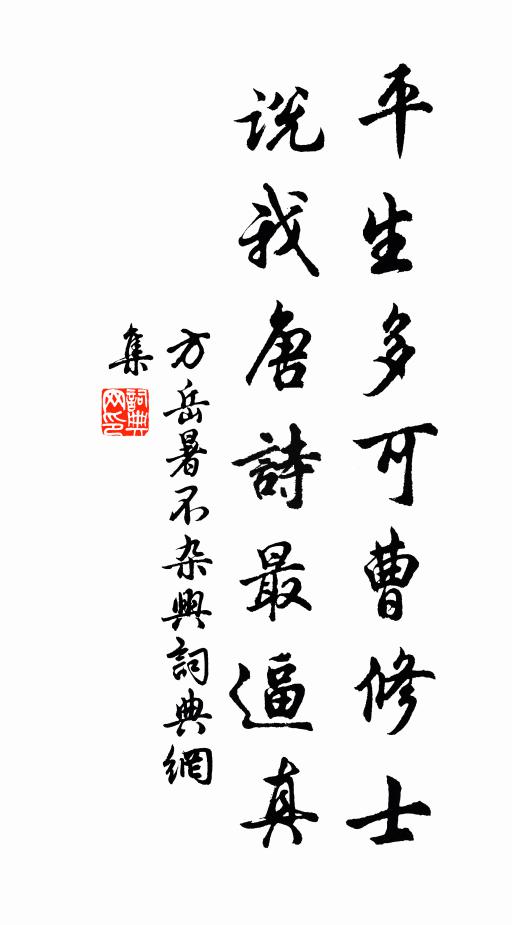 平生多可曹修士
说我唐詩最逼真
方岳暑不杂興詞典網
集
詞典
网印